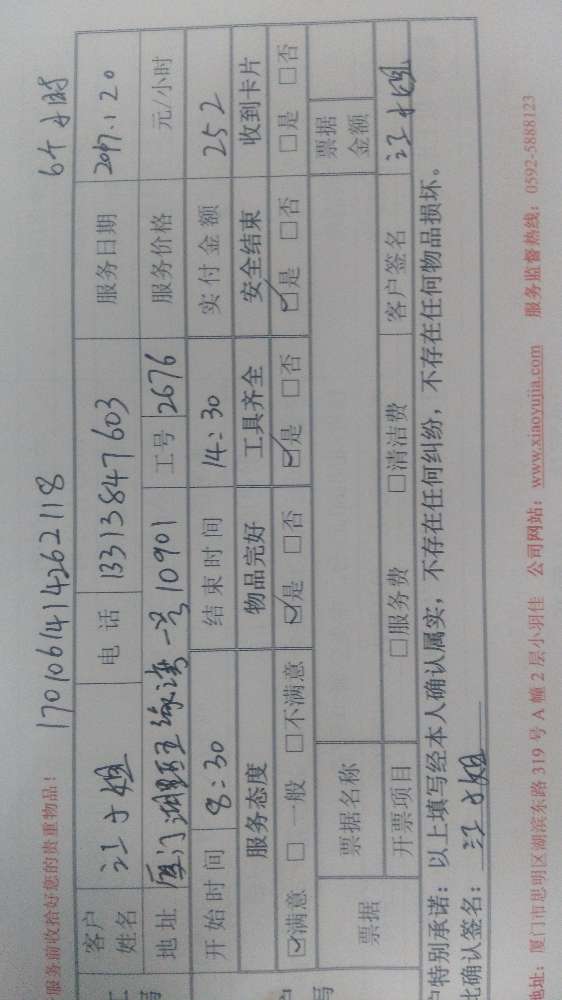 服务前收拾好您的贵重物品！ 1701061414262118 6个小时
客户姓名 江小姐 电话 13313847603 服务日期 2017.1.20
地址 厦门湖里区 一号10901 工号 2676 服务价格 元/小时
开始时间 8:30 结束时间 14:30 实付金额 252
服务态度 物品完好 工具齐全 安全结束 收到卡片
☑满意 □一般 □不满意 ☑是 □否 ☑是 □否 ☑是 □否 □是 □否
票据 票据名称 票据金额
开票项目 □服务费 □清洁费 客户签名 江小姐
户特别承诺：以上填写经本人确认属实，不存在任何纠纷，不存在任何物品损坏。
此确认签名：江小姐
地址：厦门市思明区湖滨东路319号A幢2层小羽佳 公司网站：www.xiaoyujia.com 服务监督热线：0592-5888123